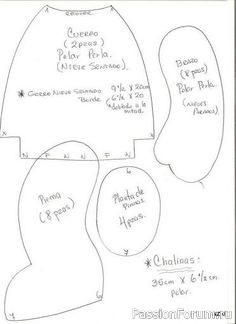 CUERPO
(2 pzas)
Polar Perla.
(NIEVE SENTADO)
* GORRO NIEVE SENTADO
Borde
9½ x 20cm
6½ x 20
doblado a la
mitad.
BRAZO
(8 pzas)
Polar Perla.
(NIEVES
PARADOS)
x
x
N
F
N
N
F
N
Pierna
(8 pzas)
Planta de
Piernas.
4 pzas.
G
Y
G
Y
* Chalinas:
35cm x 6½ cm.
Polar.
PassionForum.ru